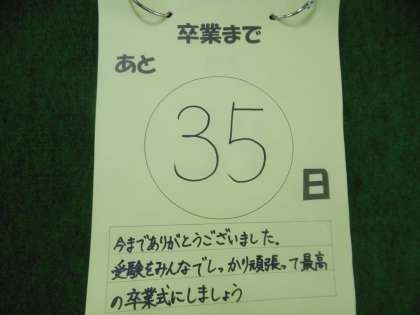 卒業まで
あと
35
日
今までありがとうございました.
受験をみんなでしっかり頑張って最高
の卒業式にしましょう